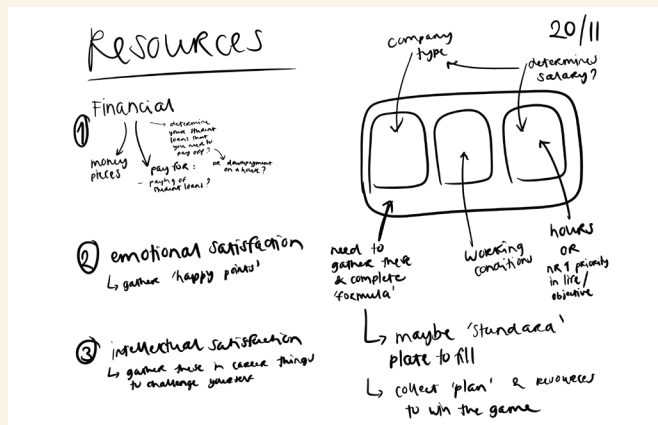 Resources
20/11
① Financial
money
pieces
pay for:
- paying of
student loans?
determine
your student
loans that
you need to
pay off?
or downpayment
on a house?
② emotional satisfaction
↳ gather 'happy points'
③ intellectual satisfaction
↳ gather these in career things
to challenge yourself
company
type
determines
salary?
need to
gather these
& complete
'formula'
working
conditions
hours
OR
nr 1 priority
in life/
objective
↳ maybe 'standard'
plate to fill
↳ collect 'plan' & resources
to win the game